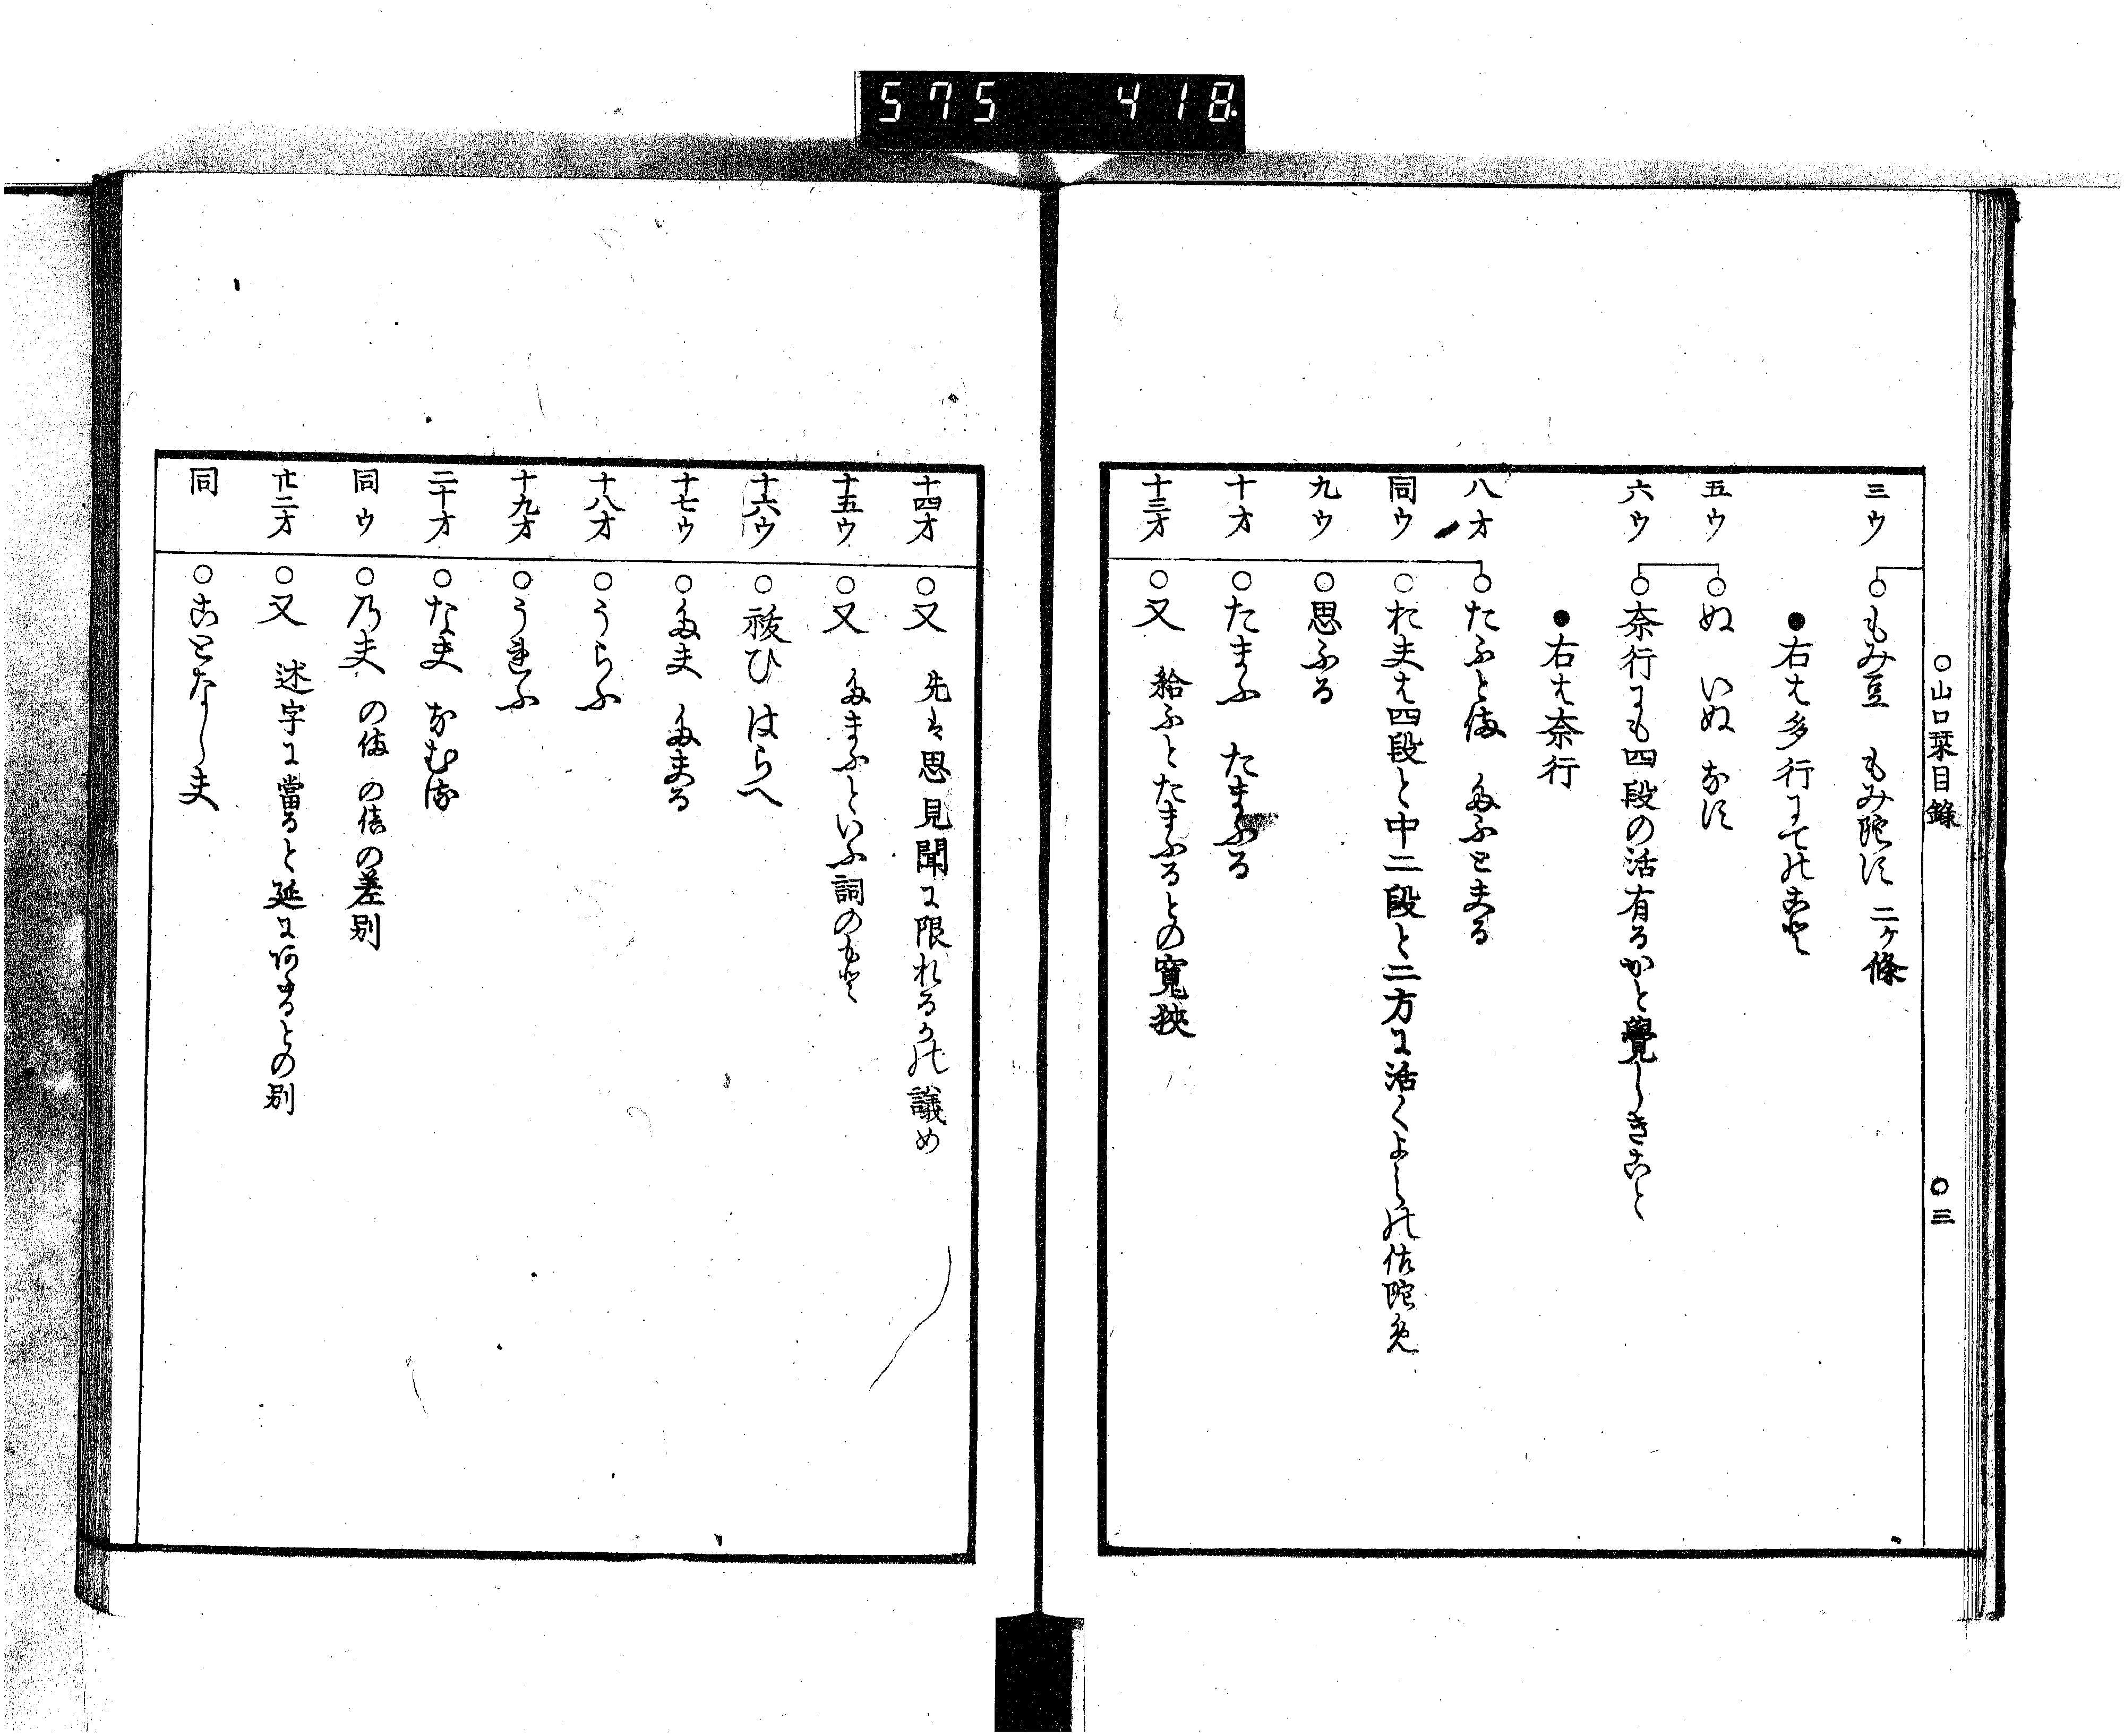 575 418
○山口栞目録 ○三
三ウ ○もみ豆 もみ陀す 二ケ條
●右は多行にての
五ウ ○ぬ いぬ なす
六ウ ○奈行にも四段の活有るかと覺しきこと
●右は奈行
八オ ○たふと備 たふとまる
同ウ ○れまは四段と中二段と二方に活くよしの佐陀免
九ウ ○思ふる
十オ ○たまふ たまふる
十三オ ○又 給ふとたまふるとの寛挾
十四オ ○又 先は思見聞に限れるかの議め
十五ウ ○又 たまふといふ詞のもと
十六ウ ○祓ひ はらへ
十七ウ ○たま たまる
十八オ ○うらふ
十九オ ○うれふ
二十オ ○なま なむ
同ウ ○乃ま の備 の倍の差別
廿二オ ○又 述字に當ると延にあたるとの別
同 ○ことなしま